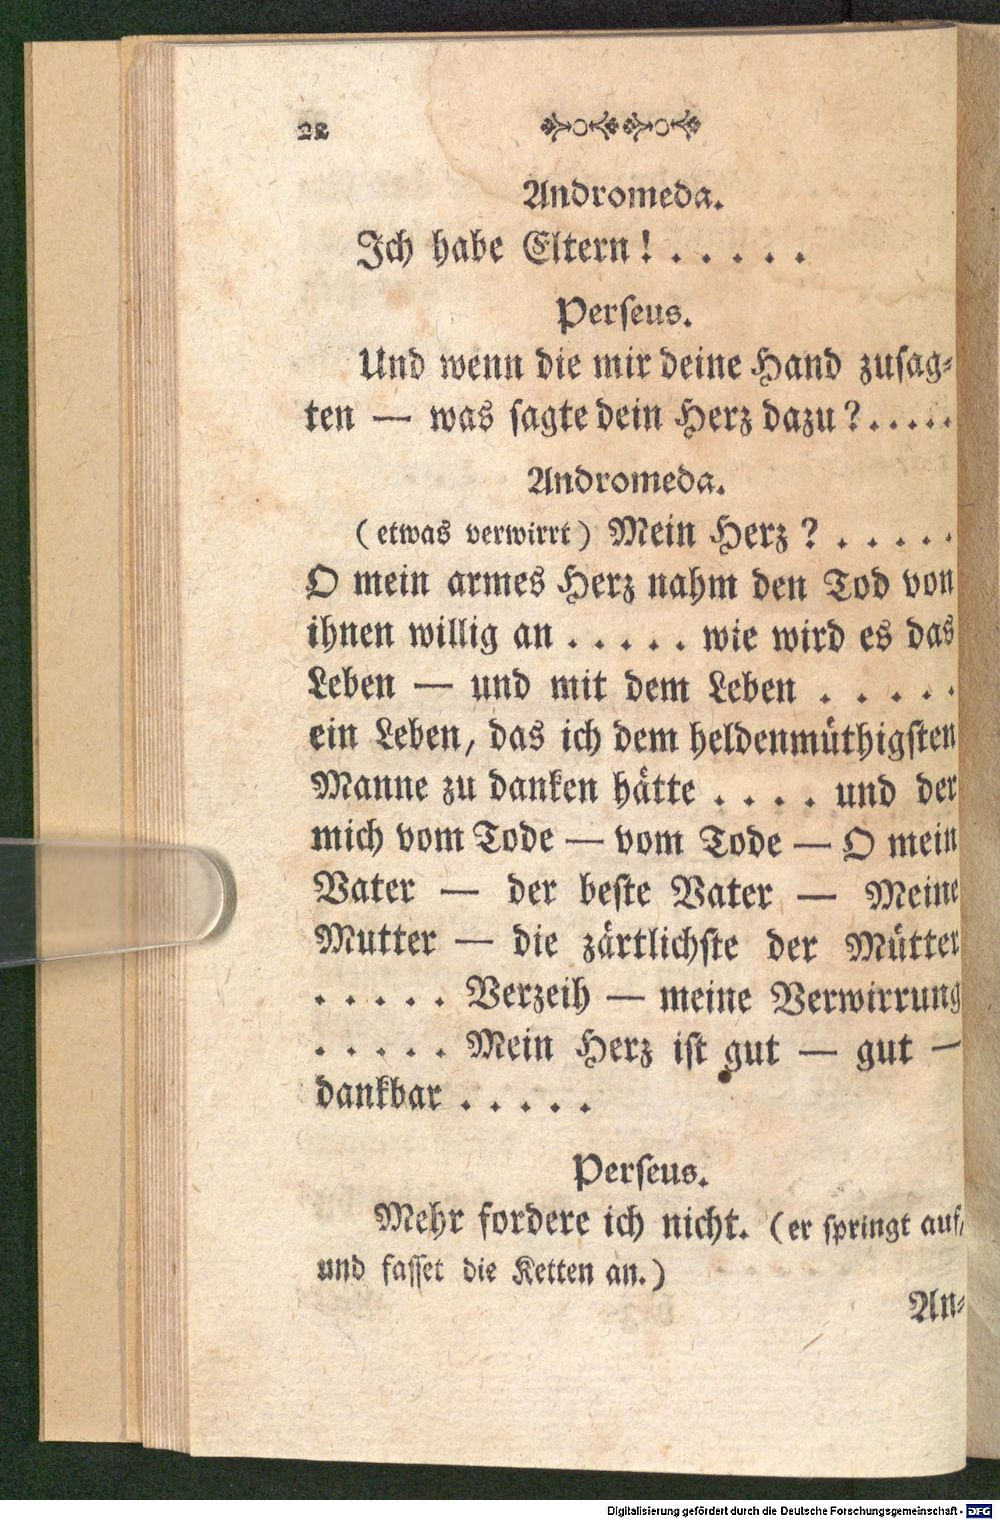 28
Andromeda.
Ich habe Eltern! . . . . .
Perſeus.
Und wenn die mir deine Hand zuſag⸗
ten — was ſagte dein Herz dazu? . . . . .
Andromeda.
(etwas verwirrt) Mein Herz? . . . . .
O mein armes Herz nahm den Tod von
ihnen willig an . . . . . wie wird es das
Leben — und mit dem Leben . . . . .
ein Leben, das ich dem heldenmüthigſten
Manne zu danken hätte . . . . und der
mich vom Tode — vom Tode — O mein
Vater — der beſte Vater — Meine
Mutter — die zärtlichſte der Mütter
. . . . . Verzeih — meine Verwirrung
. . . . . Mein Herz iſt gut — gut —
dankbar . . . . .
Perſeus.
Mehr fordere ich nicht. (er ſpringt auf,
und faſſet die Ketten an.)
An⸗
Digitalisierung gefördert durch die Deutsche Forschungsgemeinschaft - DFG